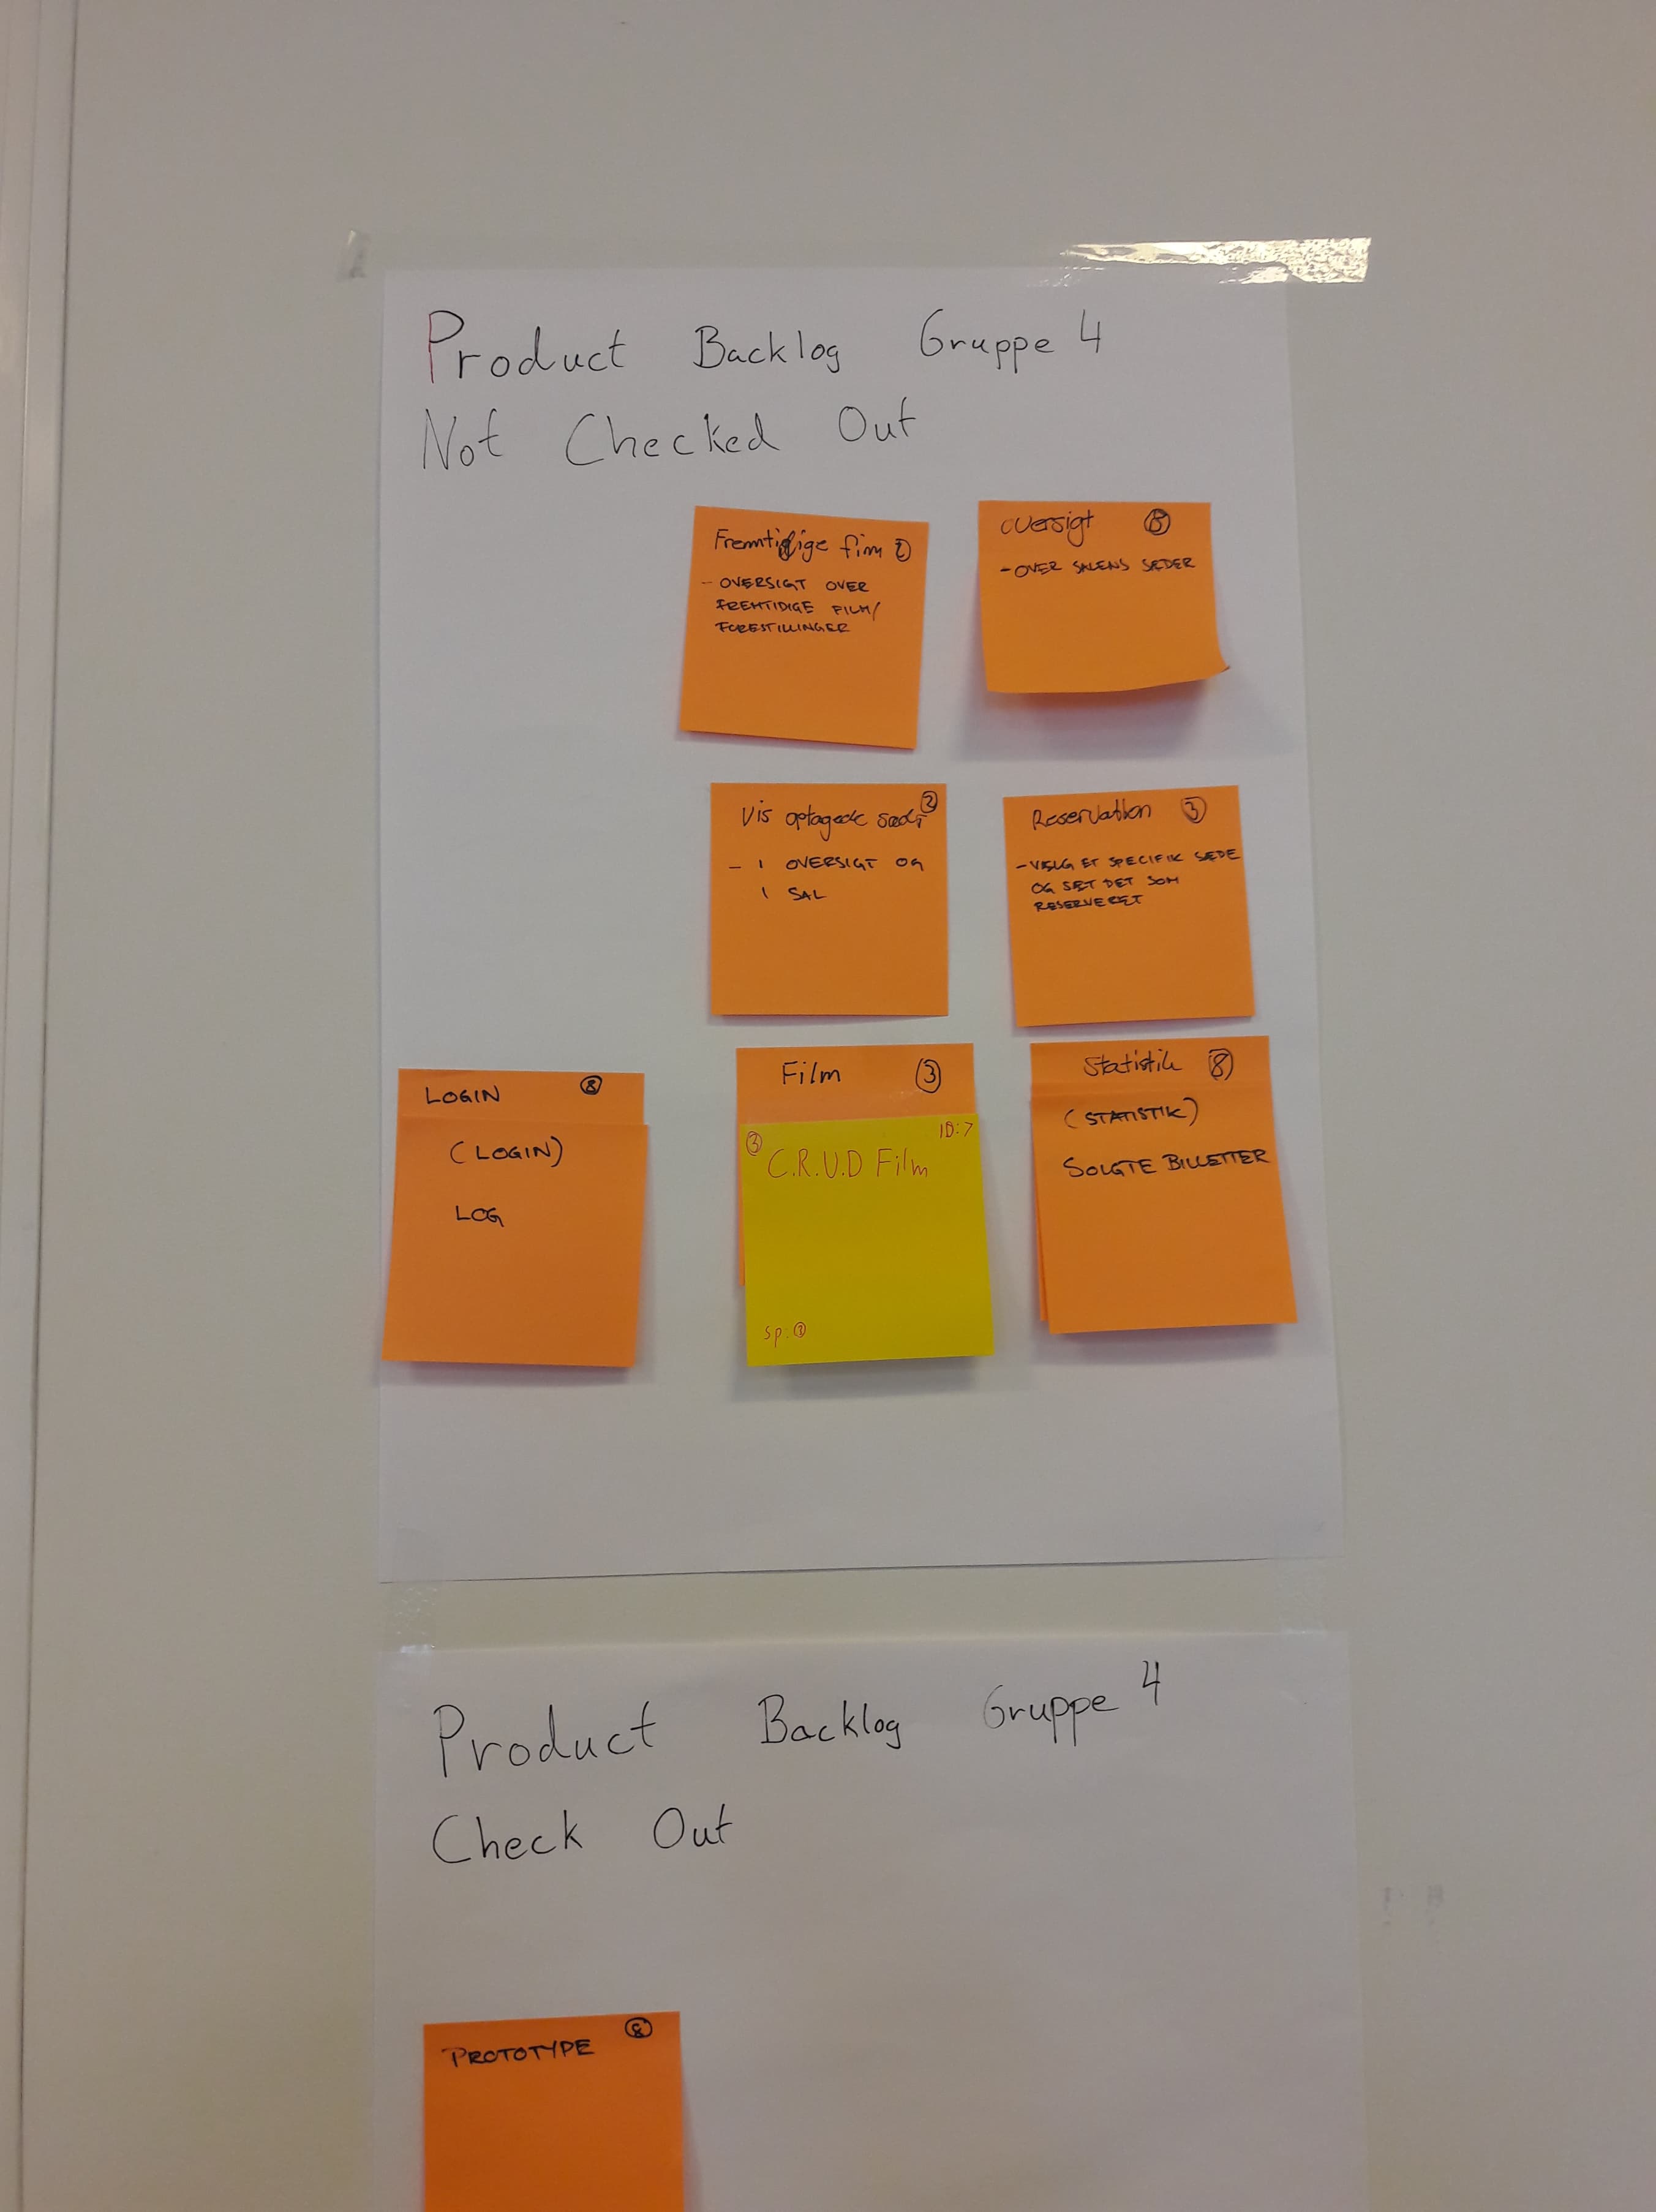 Product Backlog Gruppe 4
Not Checked Out
Fremtidige fim
- OVERSIGT OVER
FREMTIDIGE FILM/
FORESTILLINGER
oversigt
- OVER SALENS SÆDER
Vis optagede 2
- I OVERSIGT OG
I SAL
Reservation 3
- VÆLG ET SPECIFIK SÆDE
OG SÆT DET SOM
RESERVERET
LOGIN 8
(LOGIN)
LOG
Film 3
3 ID:7
C.R.U.D Film
sp:
Statistik 8
(STATISTIK)
SOLGTE BILLETTER
Product Backlog Gruppe 4
Check Out
PROTOTYPE 8